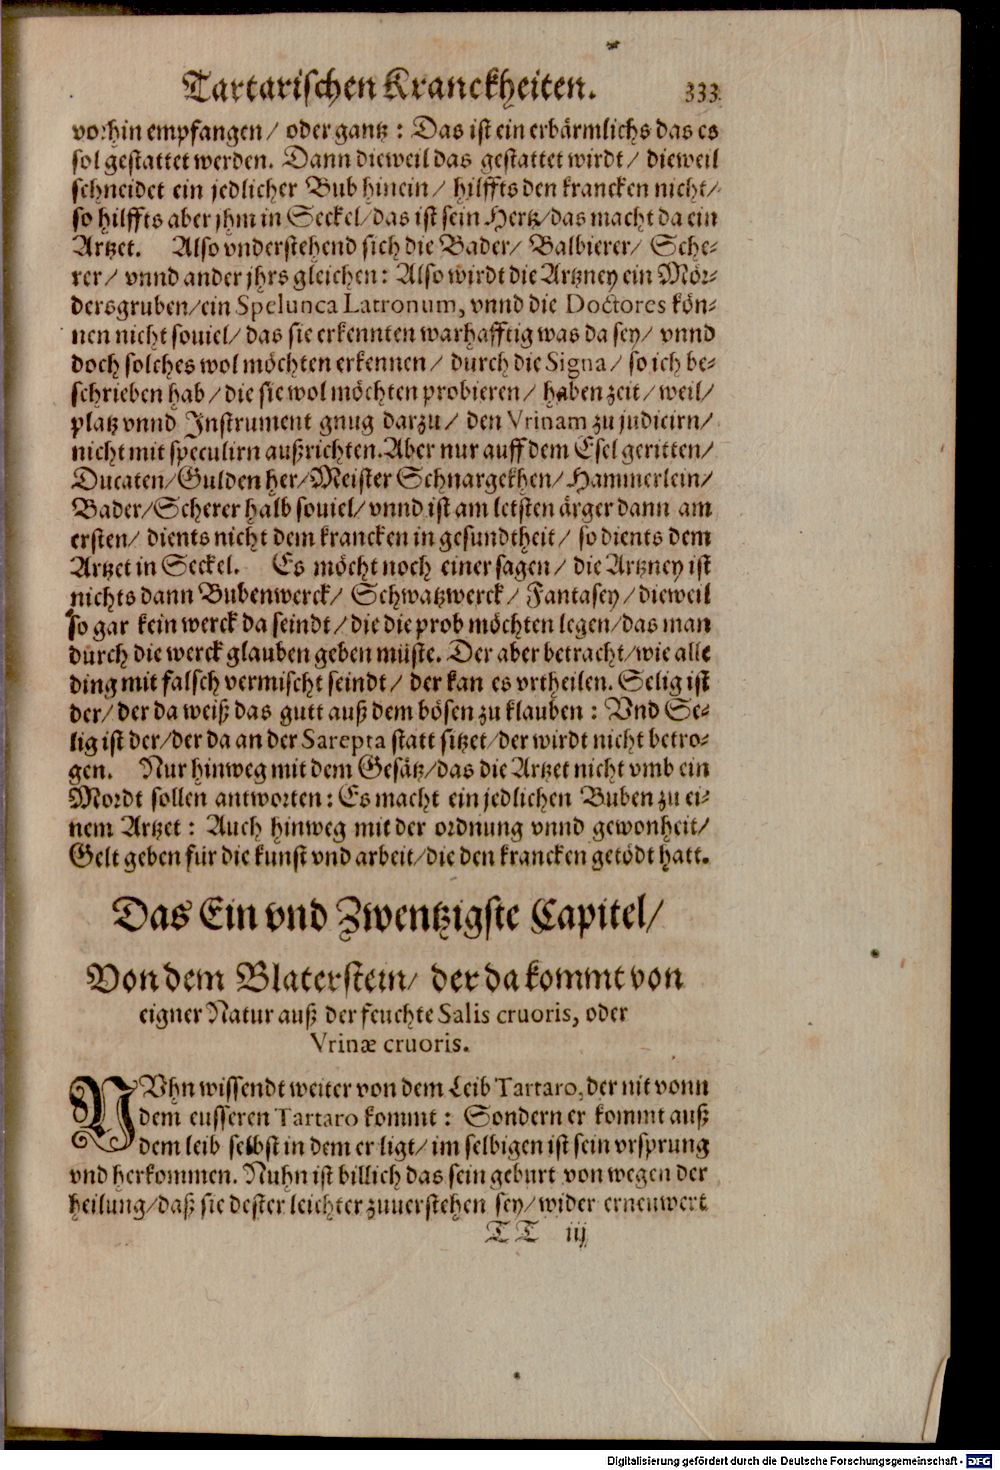 Tartarischen Kranckheiten. 333
vorhin empfangen/ oder gantz: Das ist ein erbärmlichs das es
sol gestattet werden. Dann dieweil das gestattet wirdt/ dieweil
schneidet ein jedlicher Bub hinein/ hilffts den krancken nicht/
so hilffts aber jhm in Seckel/ das ist sein Hertz/ das macht da ein
Artzet. Also vnderstehend sich die Bader/ Balbierer/ Sche-
rer/ vnnd ander jhrs gleichen: Also wirdt die Artzney ein Mör-
dersgruben/ ein Spelunca Latronum, vnnd die Doctores kön-
nen nicht souiel/ das sie erkennten warhafftig was da sey/ vnnd
doch solches wol möchten erkennen/ durch die Signa/ so ich be-
schrieben hab/ die sie wol möchten probieren/ haben zeit/ weil/
platz vnnd Instrument gnug darzu/ den Vrinam zu judicirn/
nicht mit speculirn außrichten. Aber nur auff dem Esel geritten/
Ducaten/ Gulden her/ Meister Schnargekhen/ Hammerlein/
Bader/ Scherer halb souiel/ vnnd ist am letsten ärger dann am
ersten/ dients nicht dem krancken in gesundtheit/ so dients dem
Artzet in Seckel. Es möcht noch einer sagen/ die Artzney ist
nichts dann Bubenwerck/ Schwatzwerck/ Fantasey/ dieweil
so gar kein werck da seindt/ die die prob möchten legen/ das man
durch die werck glauben geben müste. Der aber betracht/ wie alle
ding mit falsch vermischt seindt/ der kan es vrtheilen. Selig ist
der/ der da weiß das gutt auß dem bösen zu klauben: Vnd Se-
lig ist der/ der da an der Sarepta statt sitzet/ der wirdt nicht betro-
gen. Nur hinweg mit dem Gesätz/ das die Artzet nicht vmb ein
Mordt sollen antworten: Es macht ein jedlichen Buben zu ei-
nem Artzet: Auch hinweg mit der ordnung vnnd gewonheit/
Gelt geben für die kunst vnd arbeit/ die den krancken getödt hatt.
Das Ein vnd Zwentzigste Capitel/
Von dem Blaterstein/ der da kommt von
eigner Natur auß der feuchte Salis cruoris, oder
Vrinæ cruoris.
NVhn wissendt weiter von dem Leib Tartaro, der nit vonn
dem eusseren Tartaro kommt: Sondern er kommt auß
dem leib selbst in dem er ligt/ im selbigen ist sein vrsprung
vnd herkommen. Nuhn ist billich das sein geburt von wegen der
heilung/ daß sie dester leichter zuuerstehen sey/ wider ernenwert
TT iij
Digitalisierung gefördert durch die Deutsche Forschungsgemeinschaft - DFG